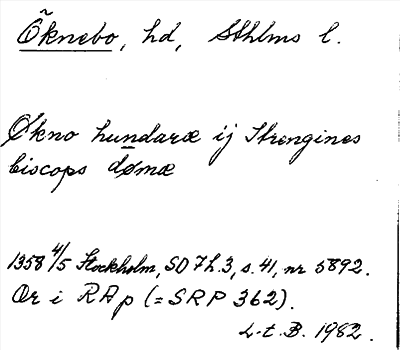 Öknebo, hd, Sthlms l.
Økno hundaræ ij Strengines
biscops dømæ
1358 4/5 Stockholm, SD 7 h. 3, s. 41, nr 5892.
Or i RAp (= SRP 362).
L-t. B. 1982.